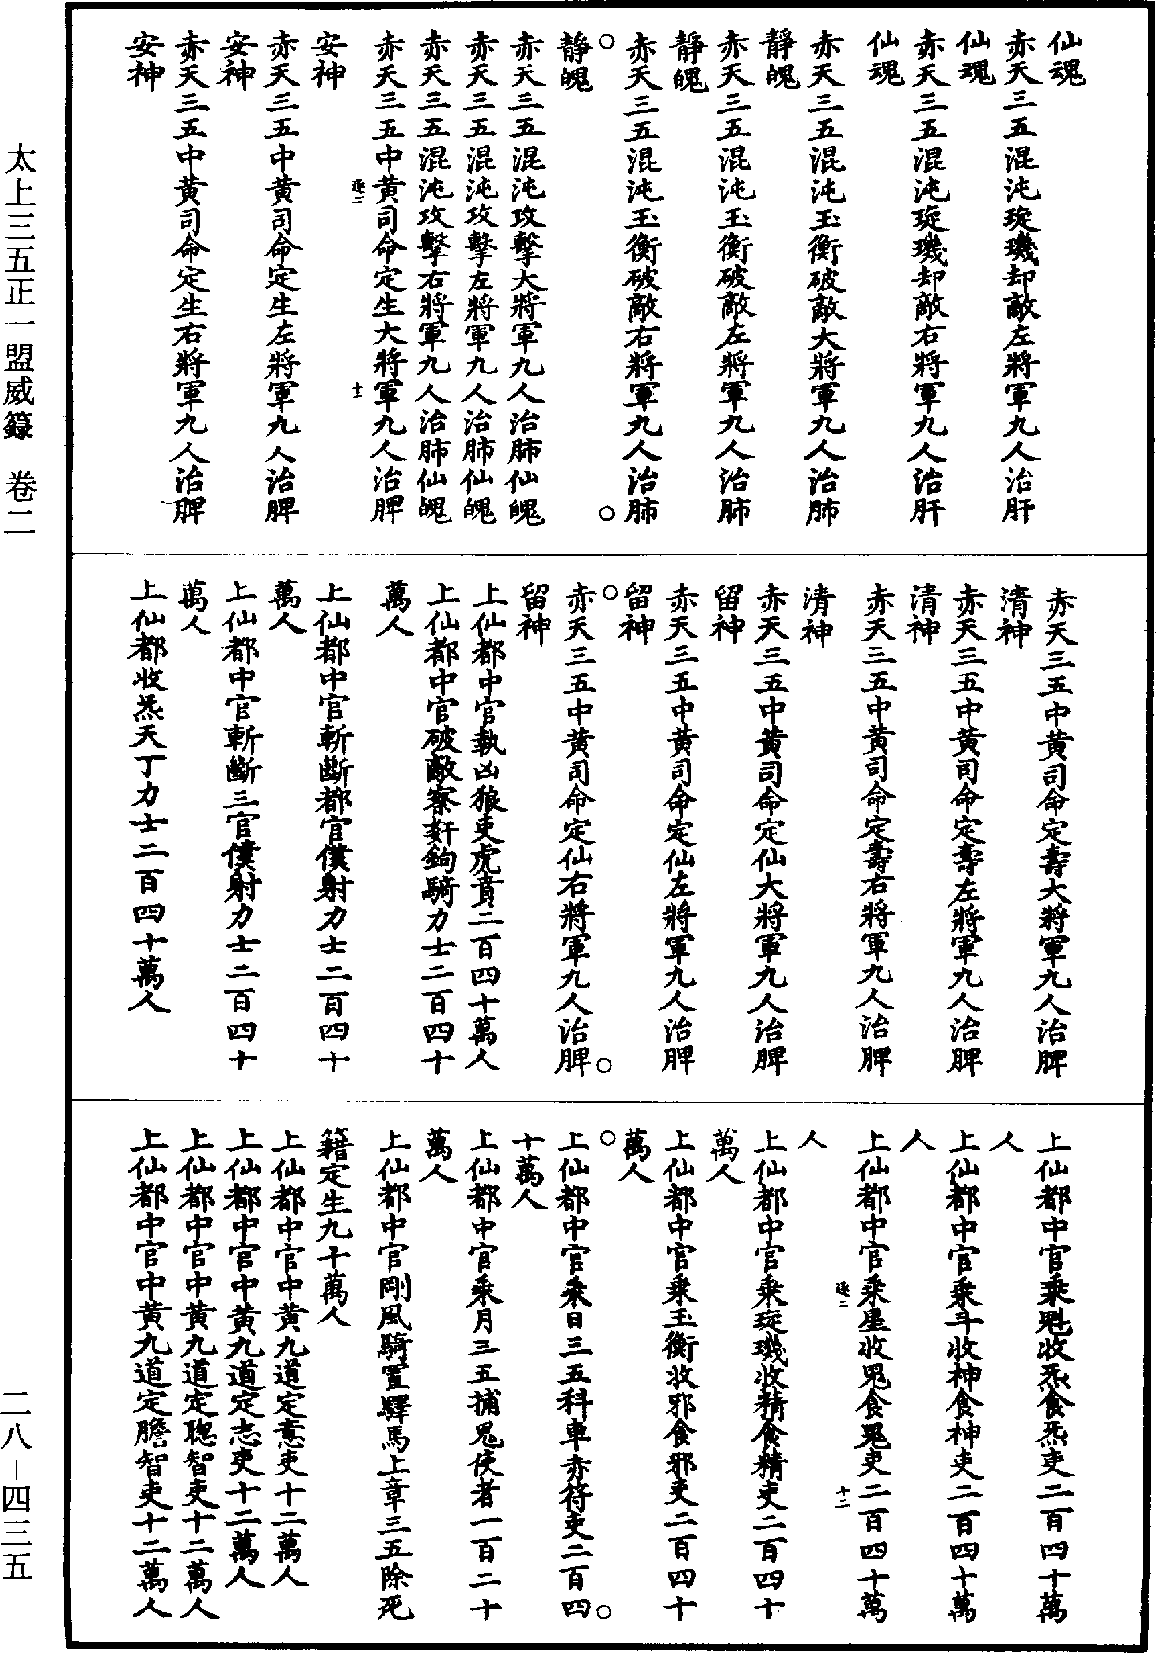 仙魂
赤天三五混沌琁璣却敵左將軍九人治肝
仙魂
赤天三五混沌琁璣却敵右將軍九人治肝
仙魂
赤天三五混沌玉衡破敵大將軍九人治肺
靜魄
赤天三五混沌玉衡破敵左將軍九人治肺
靜魄
赤天三五混沌玉衡破敵右將軍九人治肺
靜魄
赤天三五混沌攻擊大將軍九人治肺仙魄
赤天三五混沌攻擊左將軍九人治肺仙魄
赤天三五混沌攻擊右將軍九人治肺仙魄
赤天三五中黃司命定生大將軍九人治脾
安神
赤天三五中黃司命定生左將軍九人治脾
安神
赤天三五中黃司命定生右將軍九人治脾
安神
赤天三五中黃司命定壽大將軍九人治脾
清神
赤天三五中黃司命定壽左將軍九人治脾
清神
赤天三五中黃司命定壽右將軍九人治脾
清神
赤天三五中黃司命定仙大將軍九人治脾
留神
赤天三五中黃司命定仙左將軍九人治脾
留神
赤天三五中黃司命定仙右將軍九人治脾
留神
上仙都中官執凶狼吏虎賁二百四十萬人
上仙都中官破敵察奸鉤騎力士二百四十
萬人
上仙都中官斬斷都官僕射力士二百四十
萬人
上仙都中官斬斷三官僕射力士二百四十
萬人
上仙都收炁天丁力士二百四十萬人
上仙都中官乘魁收炁食炁吏二百四十萬
人
上仙都中官乘斗收神食神吏二百四十萬
人
上仙都中官乘星收鬼食鬼吏二百四十萬
人
上仙都中官乘琁璣收精食精吏二百四十
萬人
上仙都中官乘玉衡收邪食邪吏二百四十
萬人
上仙都中官乘日三五科車赤符吏二百四
十萬人
上仙都中官乘月三五捕鬼使者一百二十
萬人
上仙都中官剛風騎置驛馬上章三五除死
籍定生九十萬人
上仙都中官中黃九道定意吏十二萬人
上仙都中官中黃九道定志吏十二萬人
上仙都中官中黃九道定聰智吏十二萬人
上仙都中官中黃九道定膽智吏十二萬人
太上三五正一盟威籙 卷二
二八－四三五